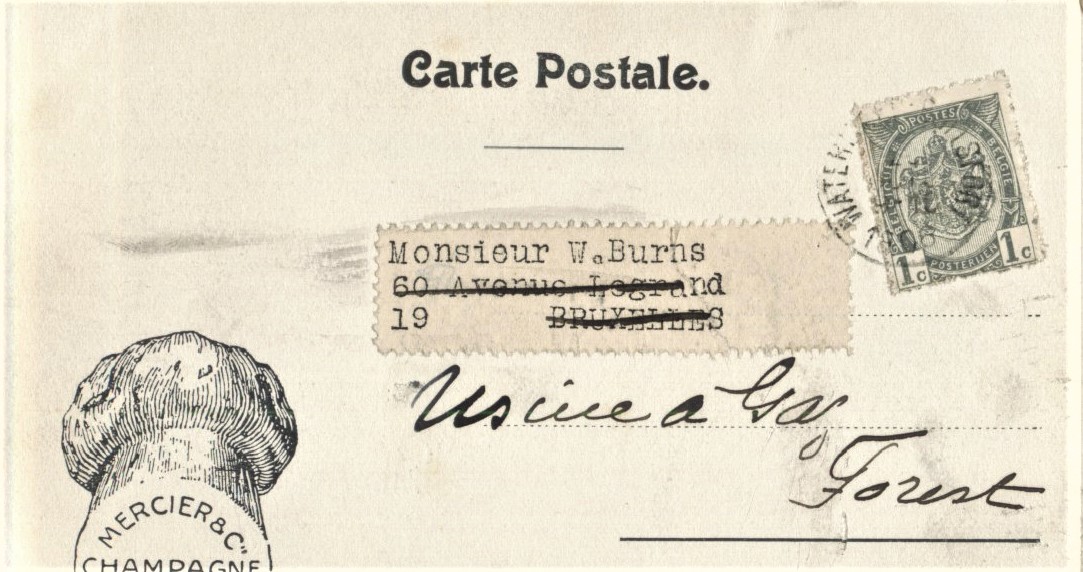 Carte Postale.
POSTES
BELGIQUE
BELGIE
POSTERIJEN
1c 1c
WATER
Monsieur W. Burns
60 Avenue Legrand
19 BRUXELLES
Usine a Gaz
Forest
MERCIER & Cie
CHAMPAGNE